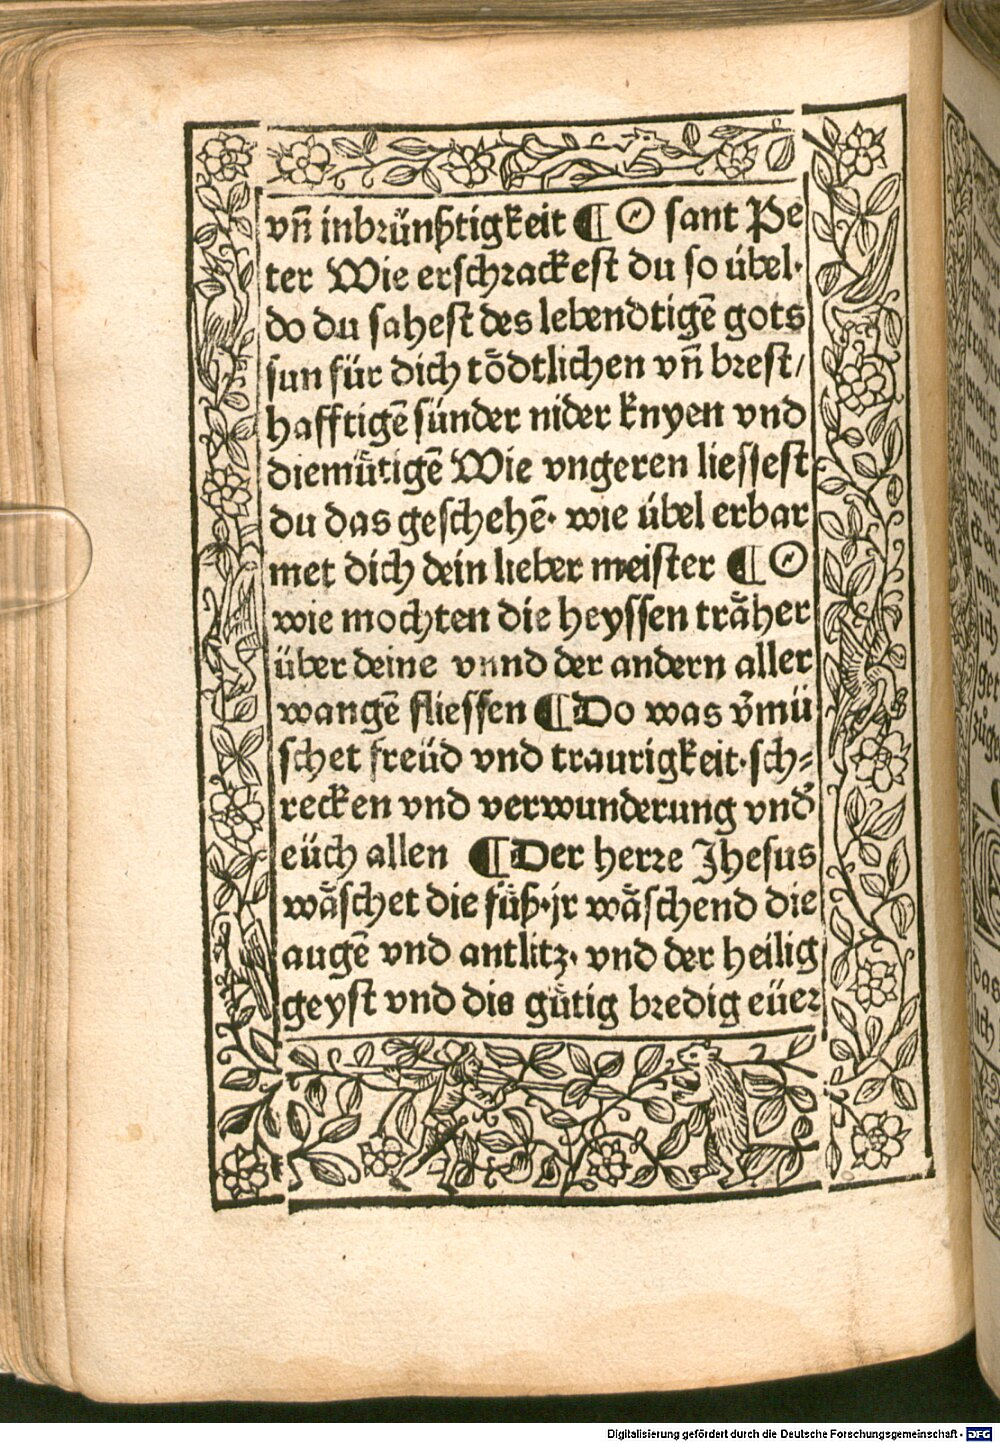 vñ inbrünßtigkeit ¶ O sant Pe
ter Wie erschrackest du so übel·
do du sahest des lebendtigē gots
sun für dich tödtlichen vñ brest/
hafftigē sünder nider knyen vnd
diemuͤtigē Wie vngeren liessest
du das geschehē· wie übel erbar
met dich dein lieber meister ¶ O
wie mochten die heyssen träher
über deine vnnd der andern aller
wangē fliessen ¶ Do was v̄mü
schet freüd vnd traurigkeit· sch⸗
recken vnd verwunderung vnd̕
eüch allen ¶ Der herre Jhesus
wäschet die fuͤß· jr wäschend die
augē vnd antlitz· vnd der heilig
geyst vnd die guͤtig bredig eüer
Digitalisierung gefördert durch die Deutsche Forschungsgemeinschaft - DFG